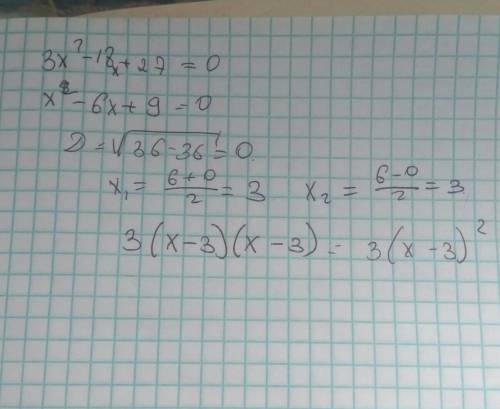 3x² - 18x + 27 = 0
x² - 6x + 9 = 0
D = √36 - 36 = 0
x₁ = (6+0)/2 = 3 x₂ = (6-0)/2 = 3
3(x-3)(x-3) = 3(x-3)²